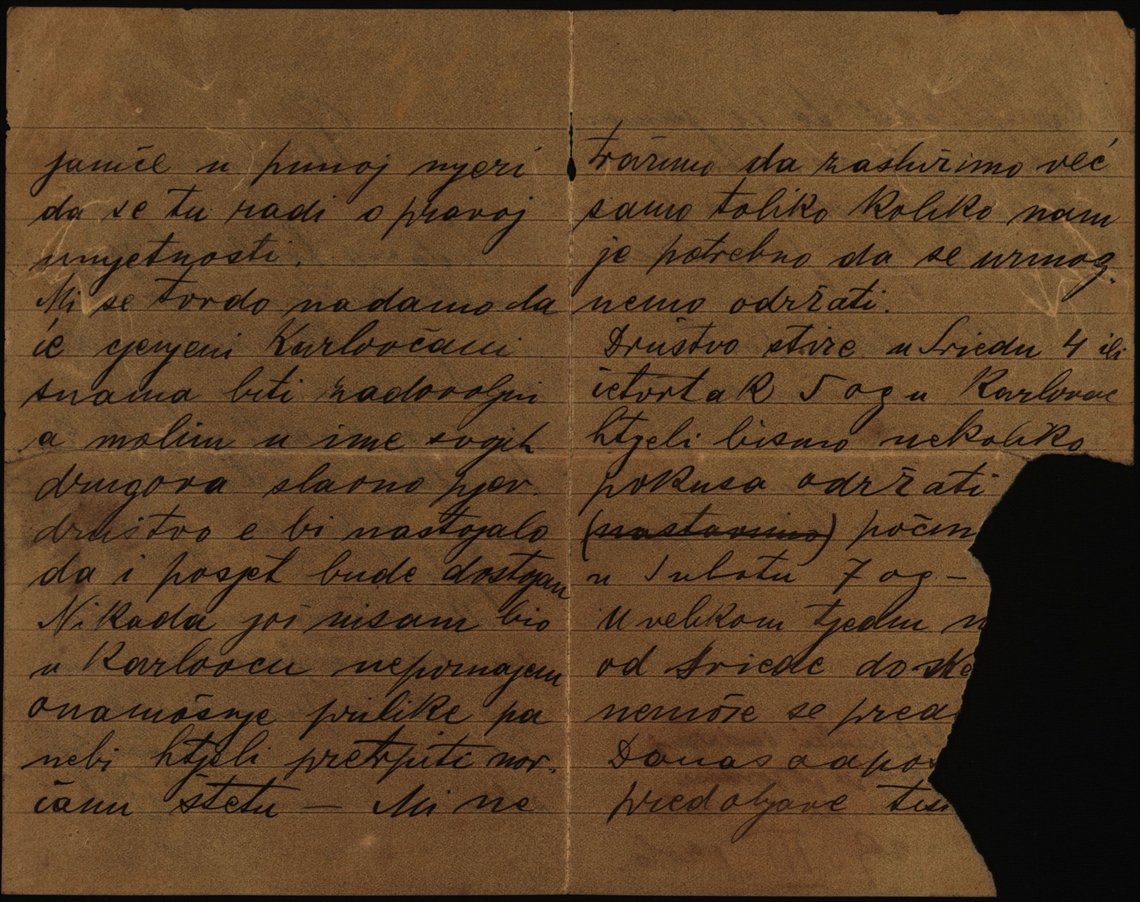 jamče u punoj mjeri
da se tu radi o pravoj
umjetnosti.
Mi se tvrdo nadamo da
će cjenjeni Karlovčani
snama biti zadovoljni
a molim u ime svojih
drugova slavno pjev.
društvo e bi nastojalo
da i posjet bude dostojan
Nikada još nisam bio
u Karlovcu nepoznajem
onamošnje prilike pa
nebi htjeli pretrpiti nov.
čanu štetu — Mi ne
tražimo da zaslužimo već
samo toliko koliko nam
je potrebno da se uzmog.
nemo održati.
Društvo stiže u Sriedu 4 ili
četvrtak 5 og u Karlovac
htjeli bismo nekoliko
pokusa održati
(nastavimo) počm
u Subotu 7 og —
U velikom tjednu
od Sriede do
nemože se pred
Danas
predobjave